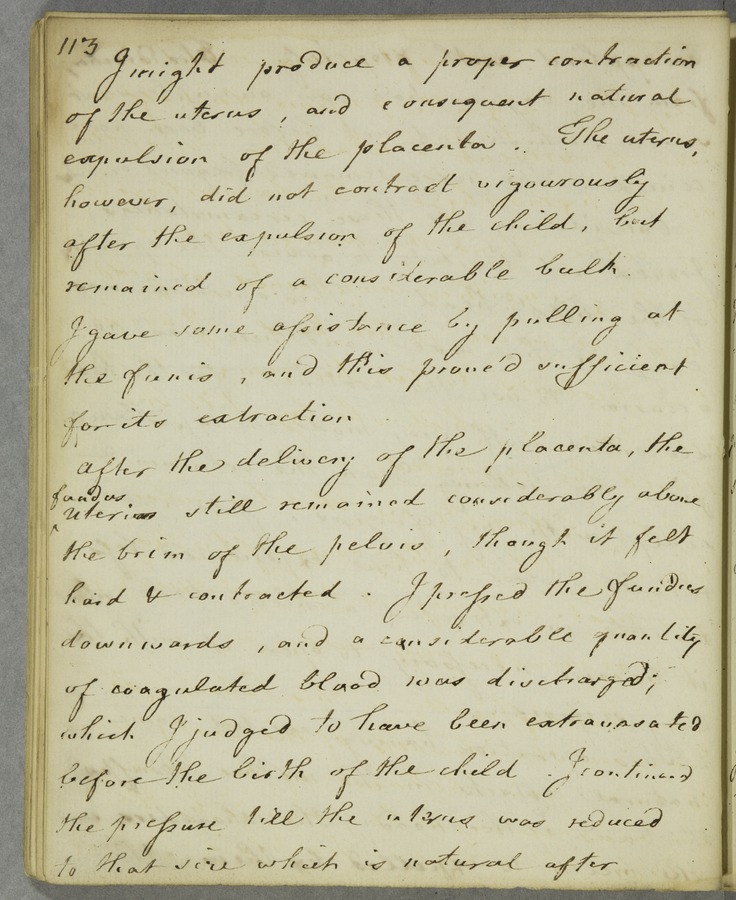 113
I might produce a proper contraction
of the uterus, and consequent natural
expulsion of the placenta. The uterus,
however, did not contract vigourously
after the expulsion of the child, but
remained of a considerable bulk.
I gave some assistance by pulling at
the funis, and this prove'd sufficient
for its extraction
After the delivery of the placenta, the
fundus
uteri still remained considerably above
the brim of the pelvis, though it felt
hard & contracted. I pressed the fundus
downwards, and a considerable quantity
of coagulated blood was discharged;
which I judged to have been extravasated
before the birth of the child. I continued
the pressure till the uterus was reduced
to that size which is natural after